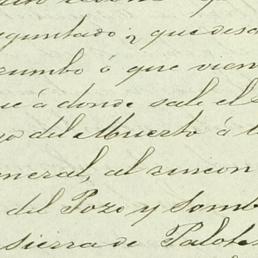 eguntado; que desc
rumbo ó que vien
ue á donde sale el s
o del Muerto á l
eneral, al rincon
del Pozo y Somb
sierra de Palote